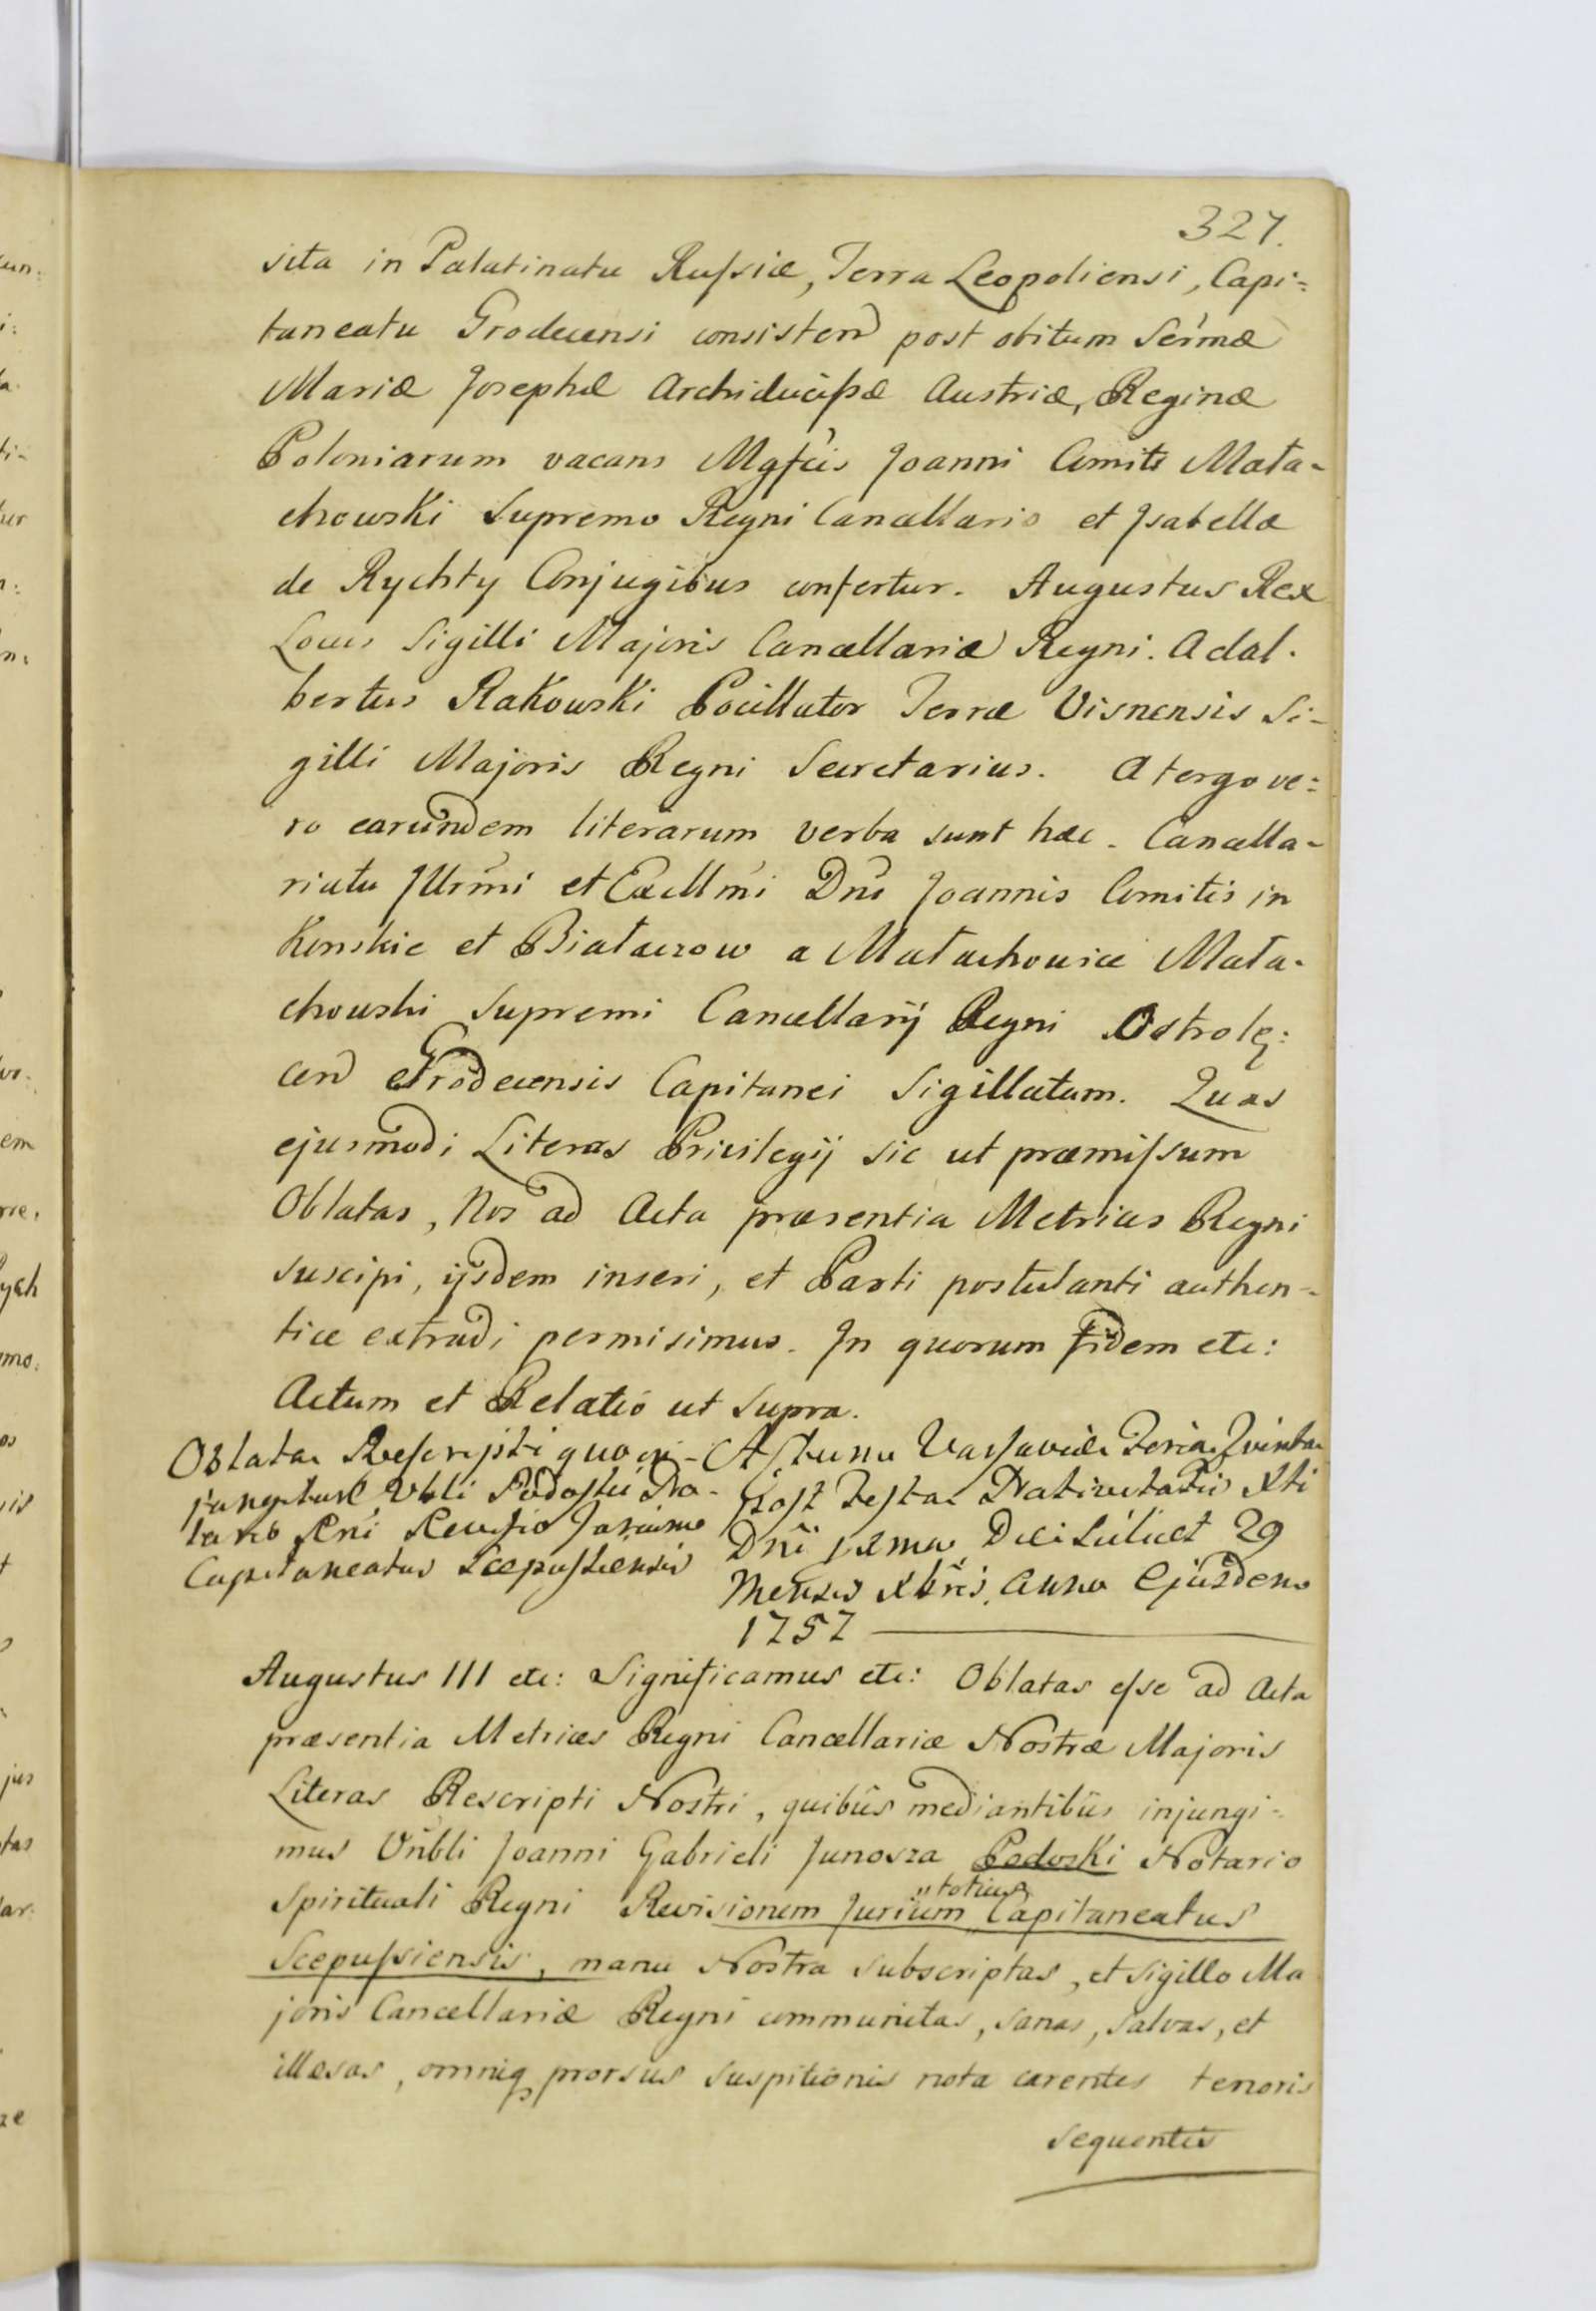 327.
sita in Palatinatu Russiæ, Terra Leopoliensi, Capi=
taneatu Grodecensi consisten post obitum Serm̃æ
Mariæ Josephæ Archiducissæ Austriæ, Reginæ
Poloniarum vacans Mgfcis Joanni Comiti Mała-
chowski Supremo Regni Cancellario et Isabellæ
de Rychty Conjugibus confertur. Augustus Rex
Locus Sigilli Majoris Cancellariæ Regni. Adal.
bertus Rakowski Pocillator Terræ Visnensis Si-
gilli Majoris Regni Secretarius. A tergo ve=
ro earundem literarum verba sunt hæc. Cancella-
riatu Illrm̃i et Excellm̃i Dnĩ Joannis Comitis in
Konskie et Białaczow a Małachowice Mała-
chowski Supremi Cancellarij Regni Ostrołę:
cen Grodecensis Capitanei Sigillatum. Quas
ejusmodi Literas Privilegij sic ut præmissum
Oblatas, Nos ad Acta præsentia Metrices Regni
suscipi, ijsdem inseri, et Parti postulanti authen-
tice extradi permisimus. In quorum fidem etc:
Actum et Relatio ut supra.
Oblata Rescripti quo in-
jungitur Vbli Podoski No-
tario Rni Revisio Jurium
Capitaneatus Scepusiensis
Actum Varsaviæ Feria Quinta
post Festa Nativitatis Xti
Dnĩ proxima Die scilicet 29
Mensis Xbris Anno Ejusdem
1757
Augustus III etc: Significamus etc: Oblatas esse ad Acta
præsentia Metrices Regni Cancellariæ Nostræ Majoris
Literas Rescripti Nostri, quibus mediantibus injungi-
mus Vnbli Joanni Gabrieli Junosza Podoski Notario
Spirituali Regni Revisionem Jurium "totius Capitaneatus
Scepussiensis, manu Nostra subscriptas, et sigillo Ma
joris Cancellariæ Regni communitas, sanas, salvas, et
illæsas, omniq prorsus suspitionis nota carentes tenoris
sequentis